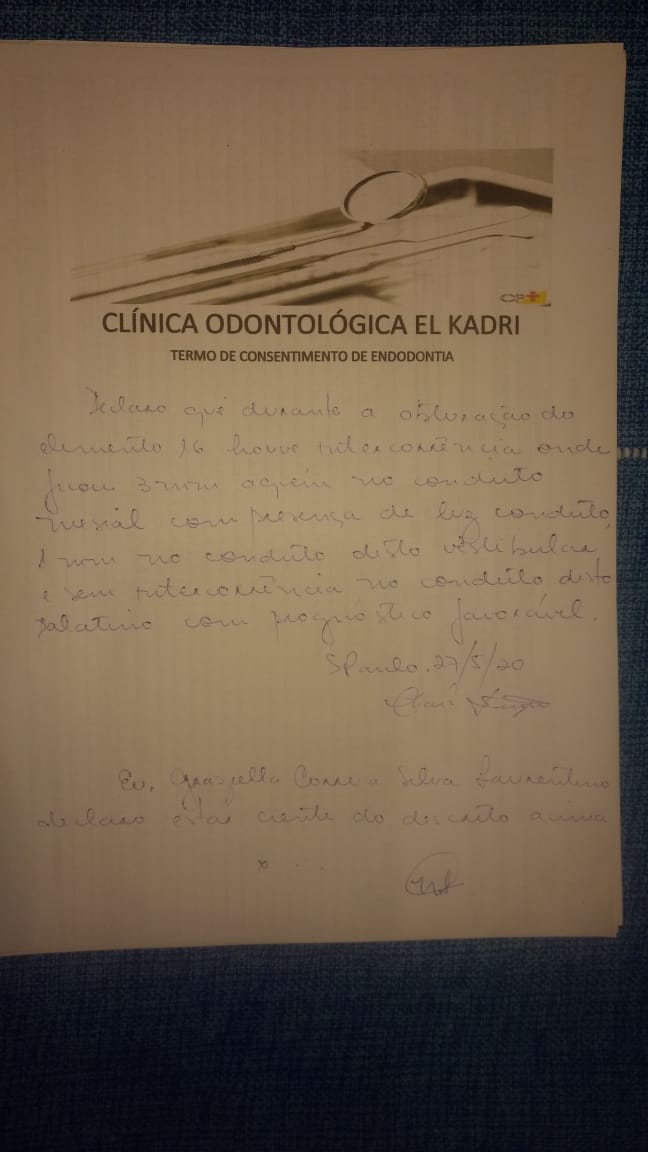 CPT
CLÍNICA ODONTOLÓGICA EL KADRI
TERMO DE CONSENTIMENTO DE ENDODONTIA
Declaro que durante a obturação do
elemento 16 houve intercorrência onde
ficou 3 mm aquém no conduto
mesial com presença de luz conduto,
1 mm no conduto disto vestibular
e sem intercorrência no conduto disto
palatino com prognóstico favorável.
SPaulo. 27/5/20
Eu, Graziella Correa Silva Laurentino
declaro estar ciente do descrito acima
x